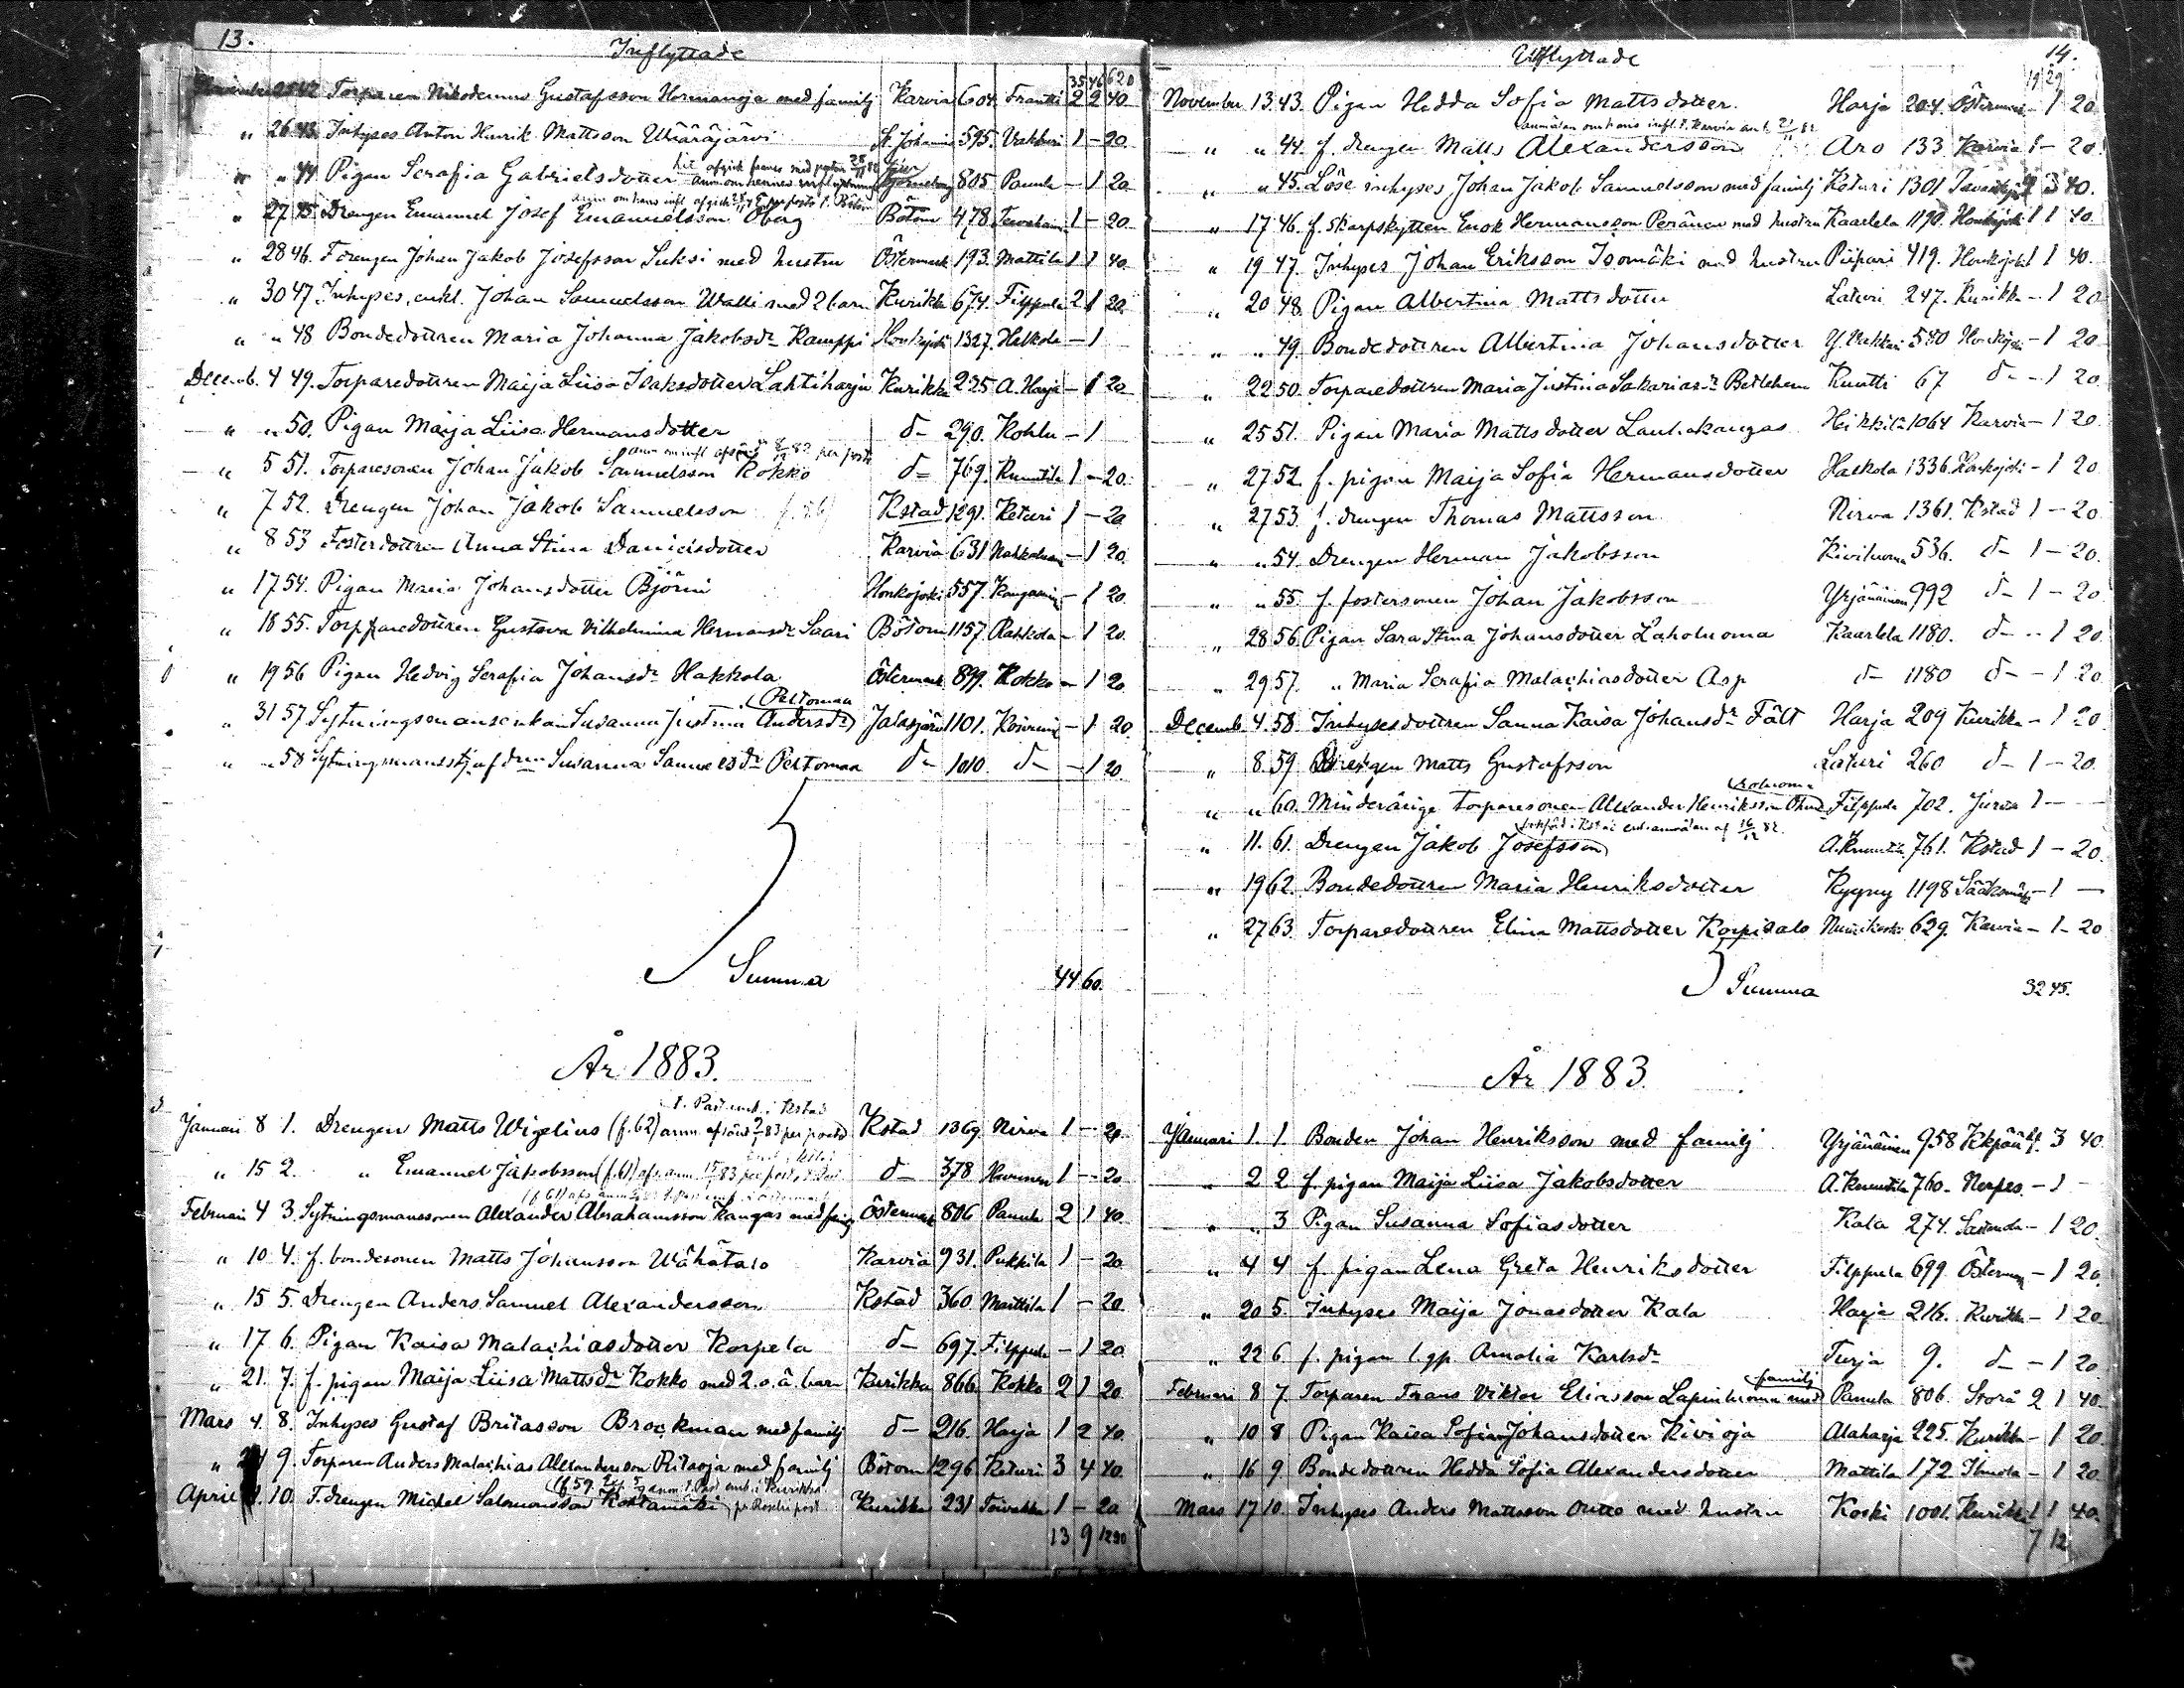 13.
Inflyttade
35 46 620
42 Torparen Nikodemus Gustafsson Hermanoja med familj Karvia 604. Frantti 2 2 40.
" 26 43. Inhyses Anton Henrik Mattsson Wääräjärvi St. Johannis 595. 1 - 20
" " 44 Pigan Serafia Gabrielsdotter 805 Panula - 1 20.
" 27 45. Drengen Emanuel Josef Emanuelsson Öberg Bötom 478. 1 - 20.
" 28 46. F. drengen Johan Jakob Josefsson Suksi med hustru Östermark 193. Mattila 1 1 40
" 30 47. Inhyses, enkl. Johan Samuelsson Walli med 2 barn Kurikka 674. Filppula 2 1 20.
" " 48 Bondedottren Maria Johanna Jakobsdr Kamppi Honkajoki 1327. Halkola - 1
Decemb. 4 49. Torparedottren Maija Liisa Isaksdotter Lahtiharju Kurikka 225 A. Harja - 1 20
" " 50. Pigan Maija Liisa Hermansdotter d- 290. Kohlu - 1
" 5 51. Torparesonen Johan Jakob Samuelsson Kokko d- 769. 1 - 20.
" 7 52. Drengen Johan Jakob Samuelsson Kstad 1291. Keturi 1 - 20
" 8 53 Fosterdottren Anna Stina Danielsdotter Karvia 631 - 1 20.
" 17 54. Pigan Maria Johansdotter Björni Honkajoki 557. - 1 20.
" 18 55. Torparedottren Gustava Vilhelmina Hermansdr Saari Bötom 1157. Rahkola - 1 20.
" 19 56 Pigan Hedvig Serafia Johansdr Hakkola Östermark 899. Kokko - 1 20.
Peltomaa
" 31 57 Sytningsmansenkan Susanna Justina Andersdr Jalasjärvi 1101. - 1 20.
" " 58 Susanna Samuelsdr Peltomaa d- 1010. d- - 1 20.
Summa 44 60.
År 1883.
Januari 8 1. Drengen Matts Wigelius (f. 62) Kstad 1369. Nirva 1 - 20.
" 15 2. " Emanuel Jakobsson (f. 61) d- 378 1 - 20
Februari 4 3. Sytningsmanssonen Alexander Abrahamsson Kangas med familj Östermark 806 Panula 2 1 40.
" 10 4. f. bondesonen Matts Johansson Wähätalo Karvia 931. Pukkila 1 - 20
" 15 5. Drengen Anders Samuel Alexandersson Kstad 360 Mattila 1 - 20.
" 17 6. Pigan Kaisa Malachiasdotter Korpela d- 697. Filppula - 1 20.
" 21. 7. f. pigan Maija Liisa Mattsdr Kokko med 2. o. ä. barn Kurikka 866. Kokko 2 1 20
Mars 4. 8. Inhyses Gustaf Britasson Brockman med familj d- 216. Harja 1 2 40.
" 9. Torparen Anders Malachias Alexandersson Ritaoja med familj Bötom 1296 Keturi 3 4 40.
April 10. F. drengen Michel Salomonsson Kurikka 231 1 - 20
13 9 1220
14.
Utflyttade
19 29
November 13. 43. Pigan Hedda Sofia Mattsdotter. Harja 204. Östermark - 1 20
" " 44. f. drengen Matts Alexandersson Aro 133 Karvia 1 - 20.
" " 45. Löse inhyses Johan Jakob Samuelsson med familj Keturi 1301 3 40.
" 17 46. f. skarpskytten Enok Hermansson Peränen med hustru Kaarlela 1190. Honkajoki 1 1 40
" 19 47. Inhyses Johan Eriksson Isomäki med hustru Piipari 419. Honkajoki 1 1 40.
" 20 48 Pigan Albertina Mattsdotter Laturi 247. Kurikka - 1 20
" " 49. Bondedottren Albertina Johansdotter Y. 580 Honkajoki - 1 20
" 22 50. Torparedottren Maria Justina Sakariasdr Betlehem Knuutti 67 d- - 1 20
" 25 51. Pigan Maria Mattsdotter Lauhakangas Heikkilä 1064 Karvia - 1 20
" 27 52. f. pigan Maija Sofia Hermansdotter Halkola 1336. Honkajoki - 1 20
" 27 53. f. drengen Thomas Mattsson Nirva 1361. Kstad 1 - 20.
" " 54. Drengen Herman Jakobsson Kiviluoma 536. d- 1 - 20.
" " 55. f. fostersonen Johan Jakobsson Yrjänäinen 992 d- 1 - 20
" 28 56. Pigan Sara Stina Johansdotter Laholuoma Kaarlela 1180. d- - 1 20.
" 29 57. " Maria Serafia Malachiasdotter Asp d- 1180 d- - 1 20
Decemb. 4. 58. Inhysesdottren Sanna Kaisa Johansdr Fält Harja 209 Kurikka - 1 20
" 8. 59 Drengen Matts Gustafsson Laturi 260 d- 1 - 20.
" " 60. Minderårige torparesonen Alexander Henriksson Filppula 702. Jurva 1 - -
" 11. 61. Drengen Jakob Josefsson A. Knuuttila 761. Kstad 1 - 20.
" 19 62. Bondedottren Maria Henriksdotter Kyyny 1198 Sääksmäki - 1 -
" 27 63. Torparedottren Elina Mattsdotter Korpisalo 629. Karvia - 1 - 20
Summa 32 45.
År 1883
Januari 1. 1. Bonden Johan Henriksson med familj Yrjänäinen 958 3 40
" 2 2 f. pigan Maija Liisa Jakobsdotter A. Knuuttila 760. Nerpes - 1 -
" " 3 Pigan Susanna Sofiasdotter Kala 274. - 1 20.
" 4 4 f. pigan Lena Greta Henriksdotter Filppula 699. Östermark - 1 20.
" 20 5. Inhyses Maija Jonasdotter Kala Harja 216. Kurikka - 1 20.
" 22 6 f. pigan Amalia Karlsdr Turja 9. d- - 1 20
familj
Februari 8 7. Torparen Frans Viktor Eliasson Lapinluoma med Panula 806. Storå 2 1 40.
" 10 8 Pigan Kaisa Sofia Johansdotter Kivioja Alaharja 225. Kurikka - 1 20.
" 16 9. Bondedottren Hedda Sofia Alexandersdotter Mattila 172 Ilmola - 1 20
Mars 17 10. Inhyses Anders Mattsson Outto med hustru Koski 1001. Kurikka 1 1 40.
7 12